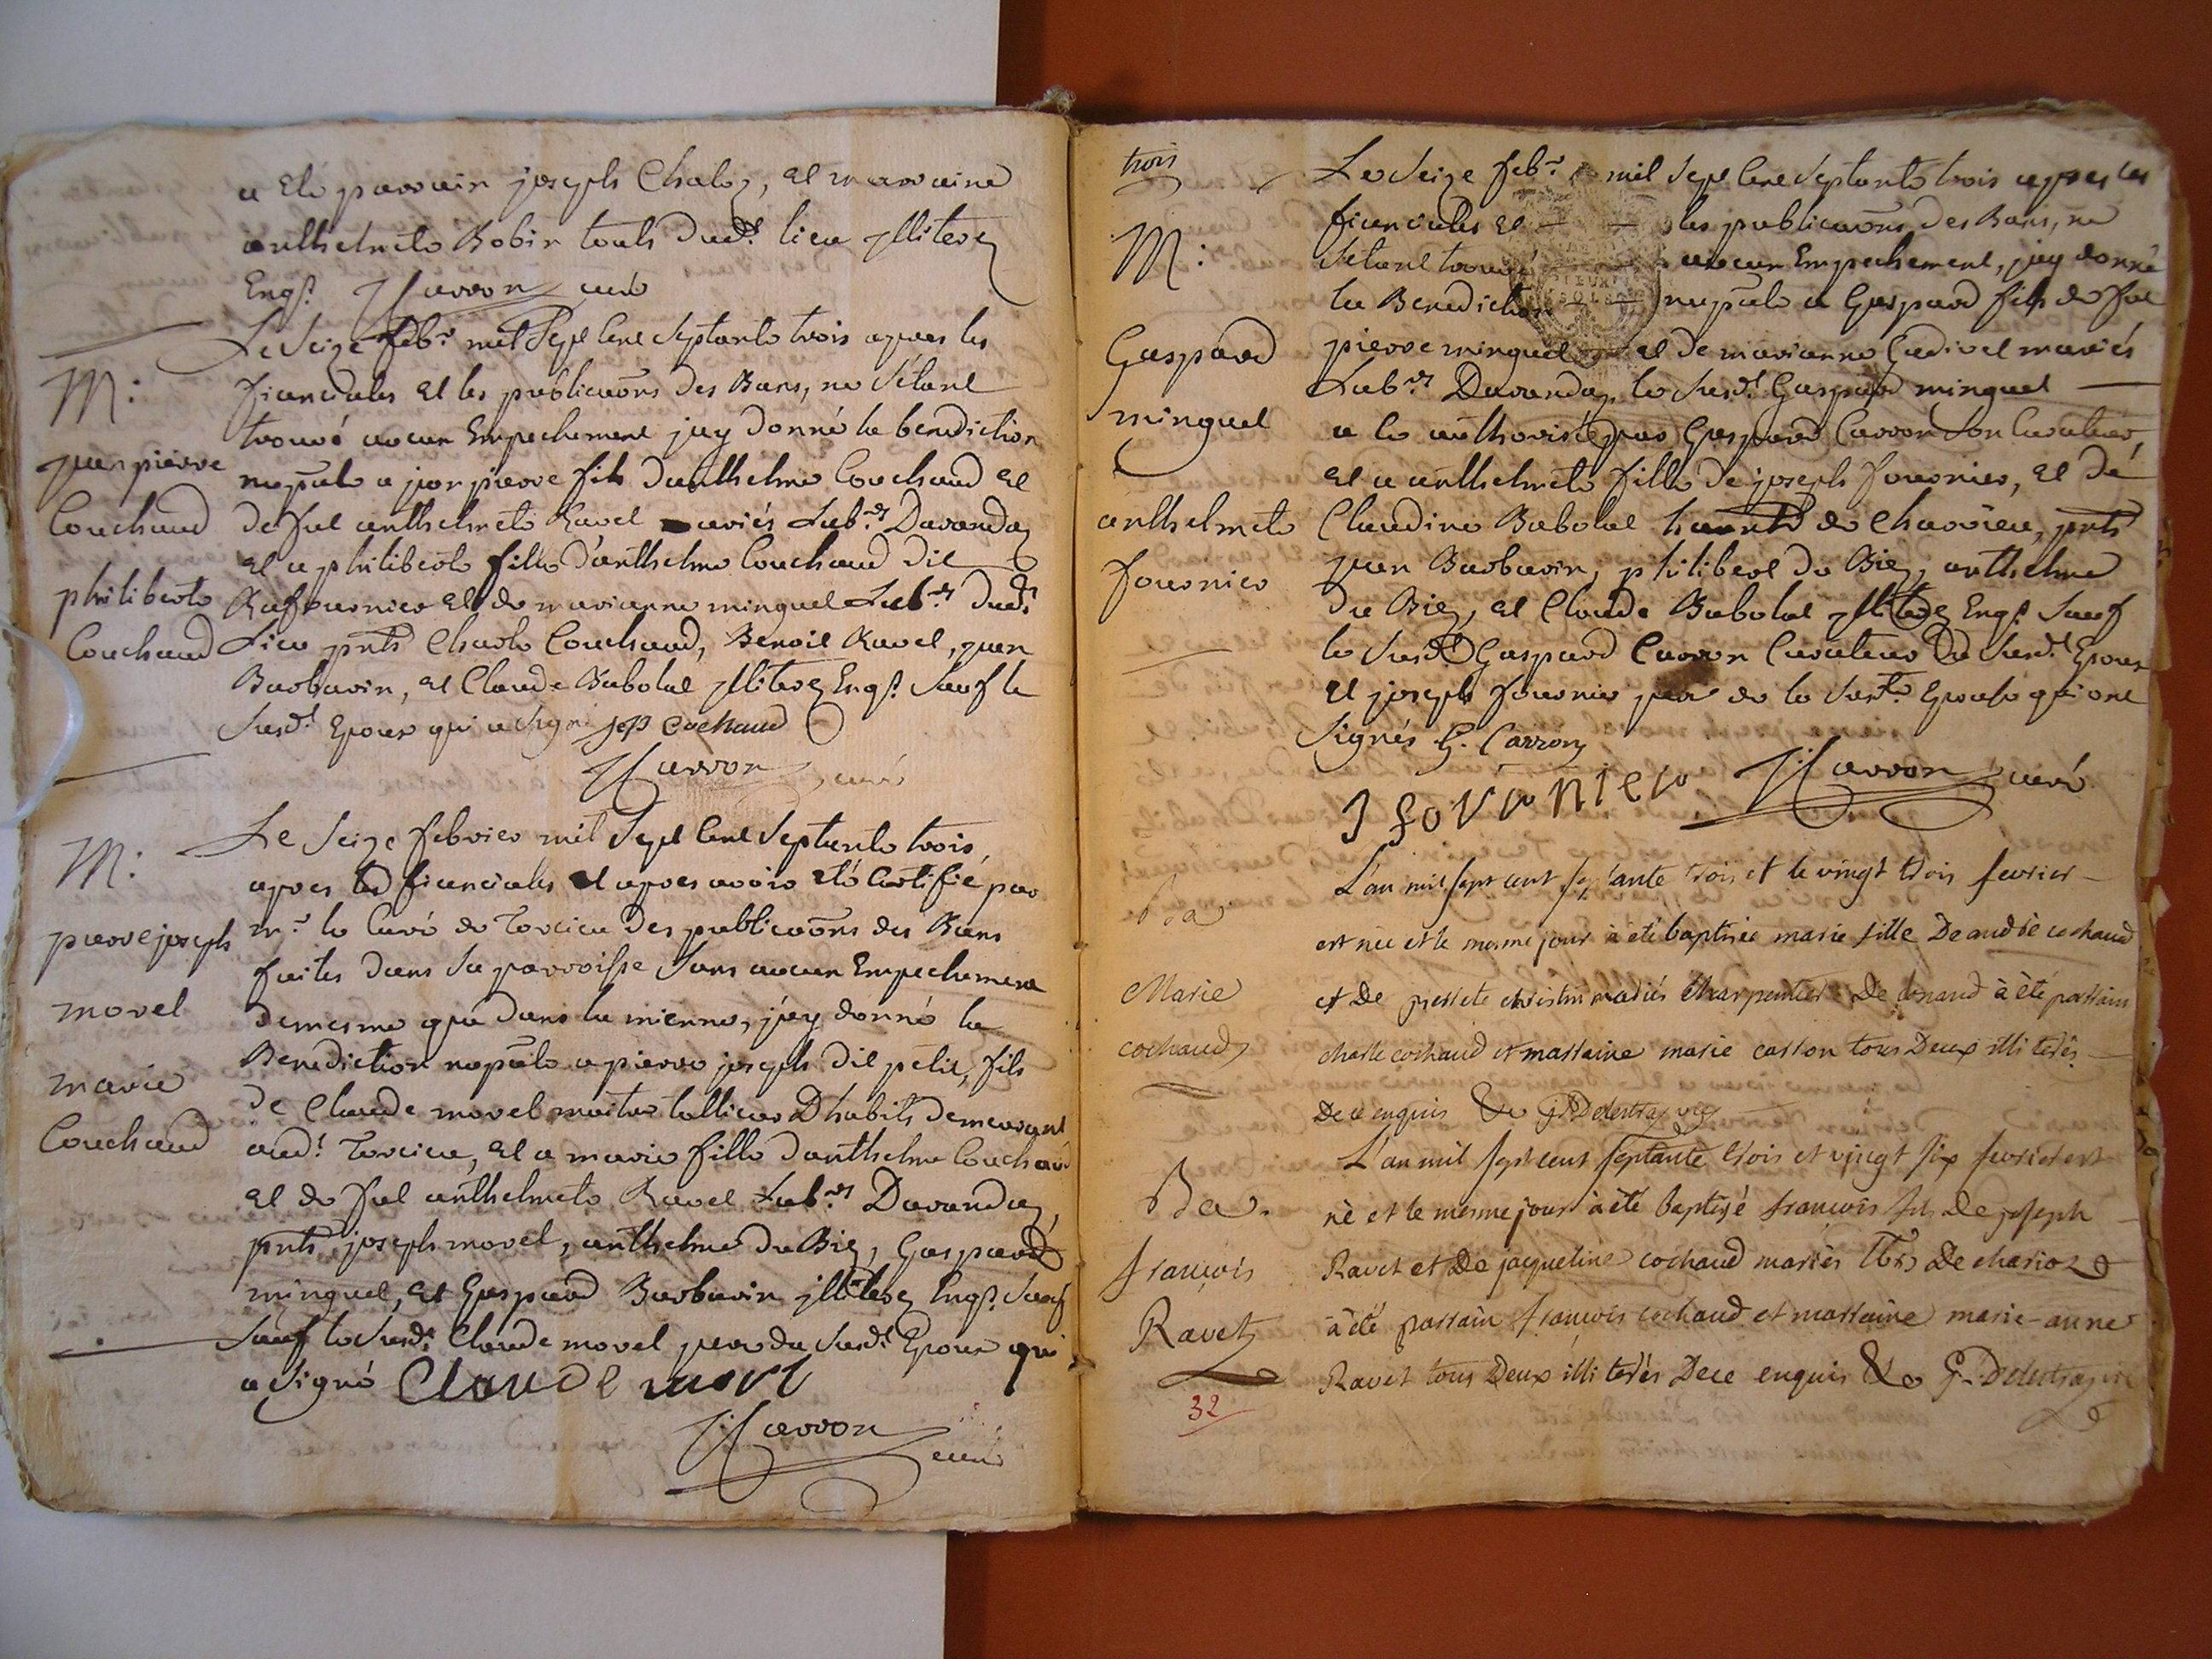 a eté parrain joseph Chaley, et marraine
anthelmete Bobin touts dudt. lieu illiterez
Enqs. Carron curé
M:
jean pierre
Couchaud
philiberte
Couchaud
Le Seize febr. mil Sept cent Septante trois apres les
fiancialles et les publicaõns des Bans, ne s'étant
trouvé aucun Empechement jay donné la benediction
nuptiale a jean pierre fils d'anthelme Couchaud et
de fut anthelmete Ravet mariés Lab.rs Davanday
et a philiberte fille d'anthelme Couchaud dit
Rafournier et de marianne minguet Lab.rs dudt
Lieu pnts Charle Couchaud, Benoit Ravet, jean
Barbarin, et Claude Babolat illiterez Enqs. Sauf le
Susdt Epoux qui a signé jep cochaud
Carron curé
M:
pierre joseph
morel
marie
Couchaud
Le Seize febvrier mil Sept cent Septante trois,
apres les fiancialles et apres avoir eté Certifié par
mr. le Curé de Torcieu des publicaõns des Bans
faites dans sa parroisse sans aucun Empechement
de mesme que dans la mienne, j'ay donné la
Benediction nuptiale a pierre joseph dit petit, fils
de Claude morel maitre tallieur D'habits demeurant
audt. Torcieu, et a marie fille d'anthelme Couchaud
et de fut anthelmete Ravet Lab.rs Davanday,
pnts joseph morel, anthelme du Biez, Gaspard
minguet, et Gaspard Barbarin illiterez Enqs. Sauf
Sauf le Susdt. Claude morel pere du Susdt Epoux qui
a signé Claude morel
Carron curé
trois
M:
Gaspard
minguet
anthelmete
fournier
Le Seize febr. mil Sept cent Septante trois apres les
fiancialles et les publicaõns des Bans, ne
s'étant trouvé aucun Empechement, jay donné
la Benediction nuptiale a Gaspard fils de fut
pierre minguet et de marianne Cadivet mariés
Lab.rs Davanday, le Susdt Gaspard minguet
a ce authorisé par Gaspard Carron son Curateur,
et a anthelmete fille de joseph fournier, et de
Claudine Babolat de Charrieu, pnts
jean Barbarin, philibert du Biez, anthelme
du Biez, et Claude Babolat illiterez Enqs. Sauf
le Susdt Gaspard Carron Curateur du Susdt. Epoux
et joseph fournier pere de la Susdte. Epouse qui ont
Signés G. Carron
J fournier Carron curé
Ba
Marie
cochaud
L'an mil sept cent septante trois et le vingt trois fevrier
est née et le mesme jour à été baptisée marie fille De andré cochaud
et De pierrete christin mariés charpentier De à été parrain
charle cochaud et marraine marie carron tous Deux illiterés
De ce enquis &c Delestra vic
Ba.
françois
Ravet
L'an mil sept cent septante trois et vingt six fevrier est
né et le mesme jour à été baptisé françois fils De joseph
Ravet et De jacqueline cochaud mariés De
à été parrain françois cochaud et marraine marie-anne
Ravet tous Deux illiterés Dece enquis &c Delestra vic
32